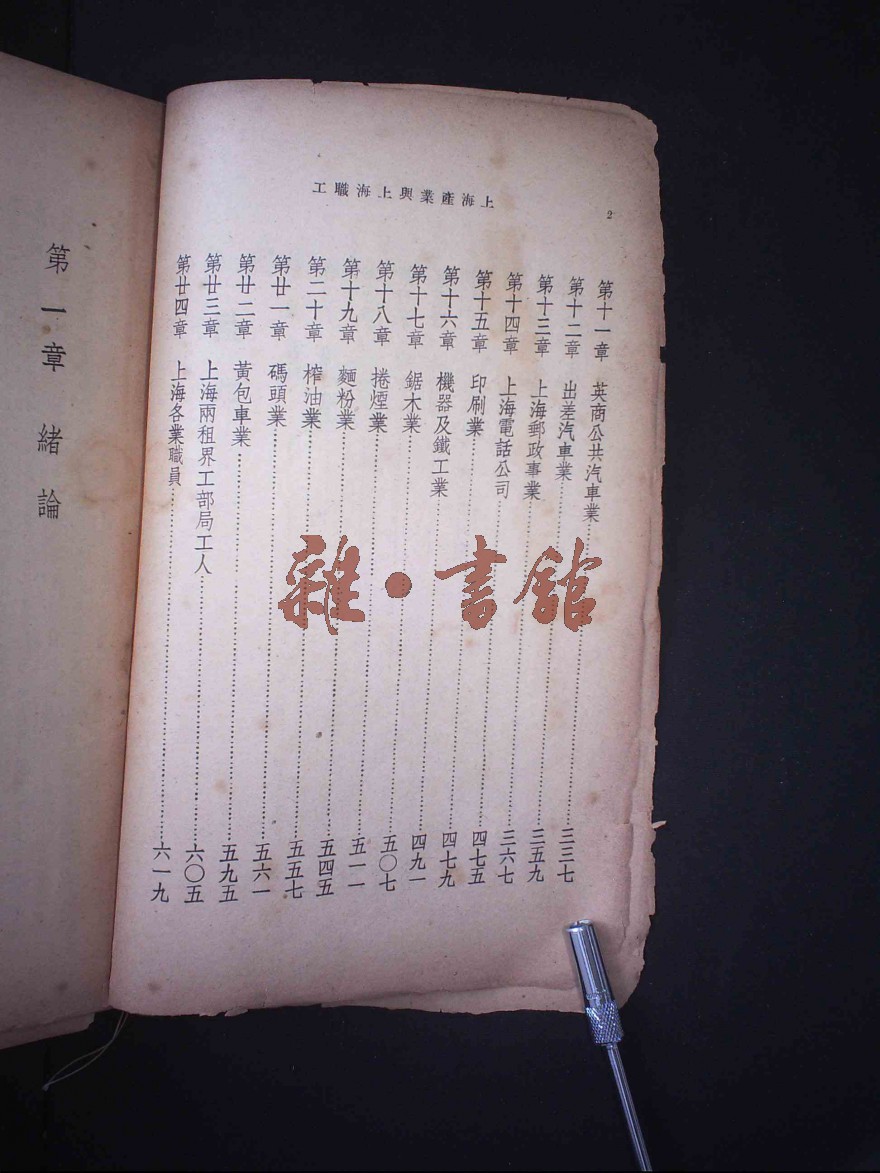 上海產業與上海職工
2
第十一章 英商公共汽車業……三三七
第十二章 出差汽車業……三五九
第十三章 上海郵政事業……三六七
第十四章 上海電話公司……四七五
第十五章 印刷業……四七九
第十六章 機器及鐵工業……四九一
第十七章 鋸木業……五〇七
第十八章 捲煙業……五一一
第十九章 麵粉業……五四五
第二十章 榨油業……五五七
第廿一章 碼頭業……五六一
第廿二章 黃包車業……五九五
第廿三章 上海兩租界工部局工人……六〇五
第廿四章 上海各業職員……六一九
第一章 緒論
雜·書館